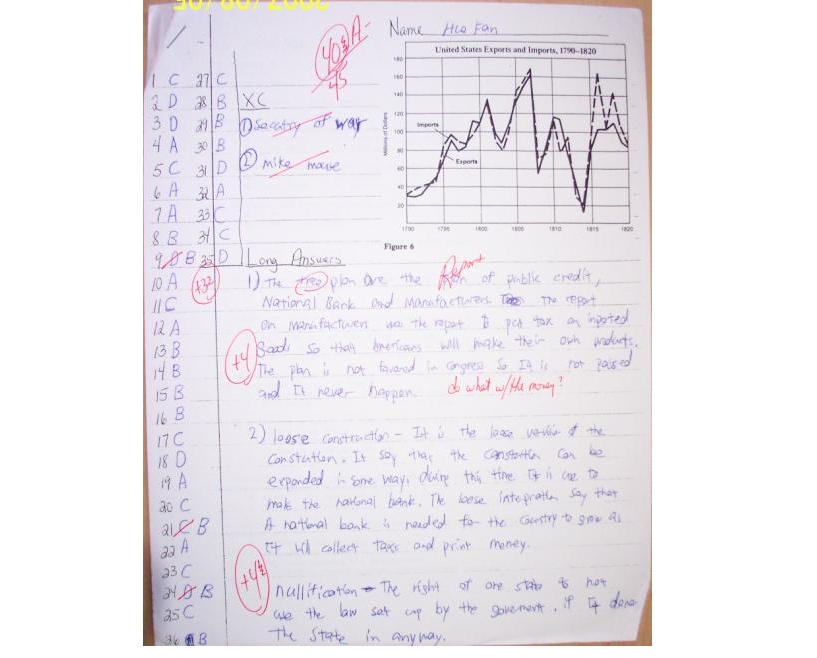 Name Hua Fan
40½ A-
45
United States Exports and Imports, 1790–1820
Millions of Dollars
180
160
140
120
100
80
60
40
20
Imports
Exports
1790 1795 1800 1805 1810 1815 1820
Figure 6
1 C 27 C
2 D 28 B XC
3 D 29 B ① Secatry of war
4 A 30 B
5 C 31 D ② mike mouse
6 A 32 A
7 A 33 C
8 B 34 C
9 B 35 D Long Answers
10 A +32
11 C
12 A
13 B
14 B
15 B
16 B
17 C
18 D
19 A
20 C
21 B
22 A
23 C
24 B
25 C
26 B
1) The tree plan are the Report of public credit,
National Bank and Manufacturers. The report
on manufacturers was the report to put tax on inported
Goods so that Americans will make their own products.
+4
The plan is not favored in congress so It is not passed
and It never happen. do what w/the money?
2) loose construction – It is the loose version of the
constution. It say that the constortion can be
expanded in some way, during this time It is use to
make the national bank. The loose intepration say that
A national bank is needed for the country to grow as
It will collect taxs and print money.
+4½
nullification – The right of one state to not
use the law set up by the goverment, if It
the State in anyway.